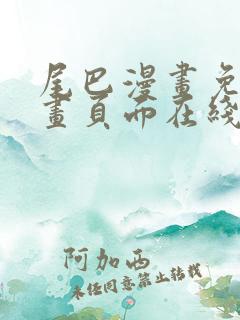 尾巴漫畫免
畫頁面在綫
阿加西
未经同意禁止转载